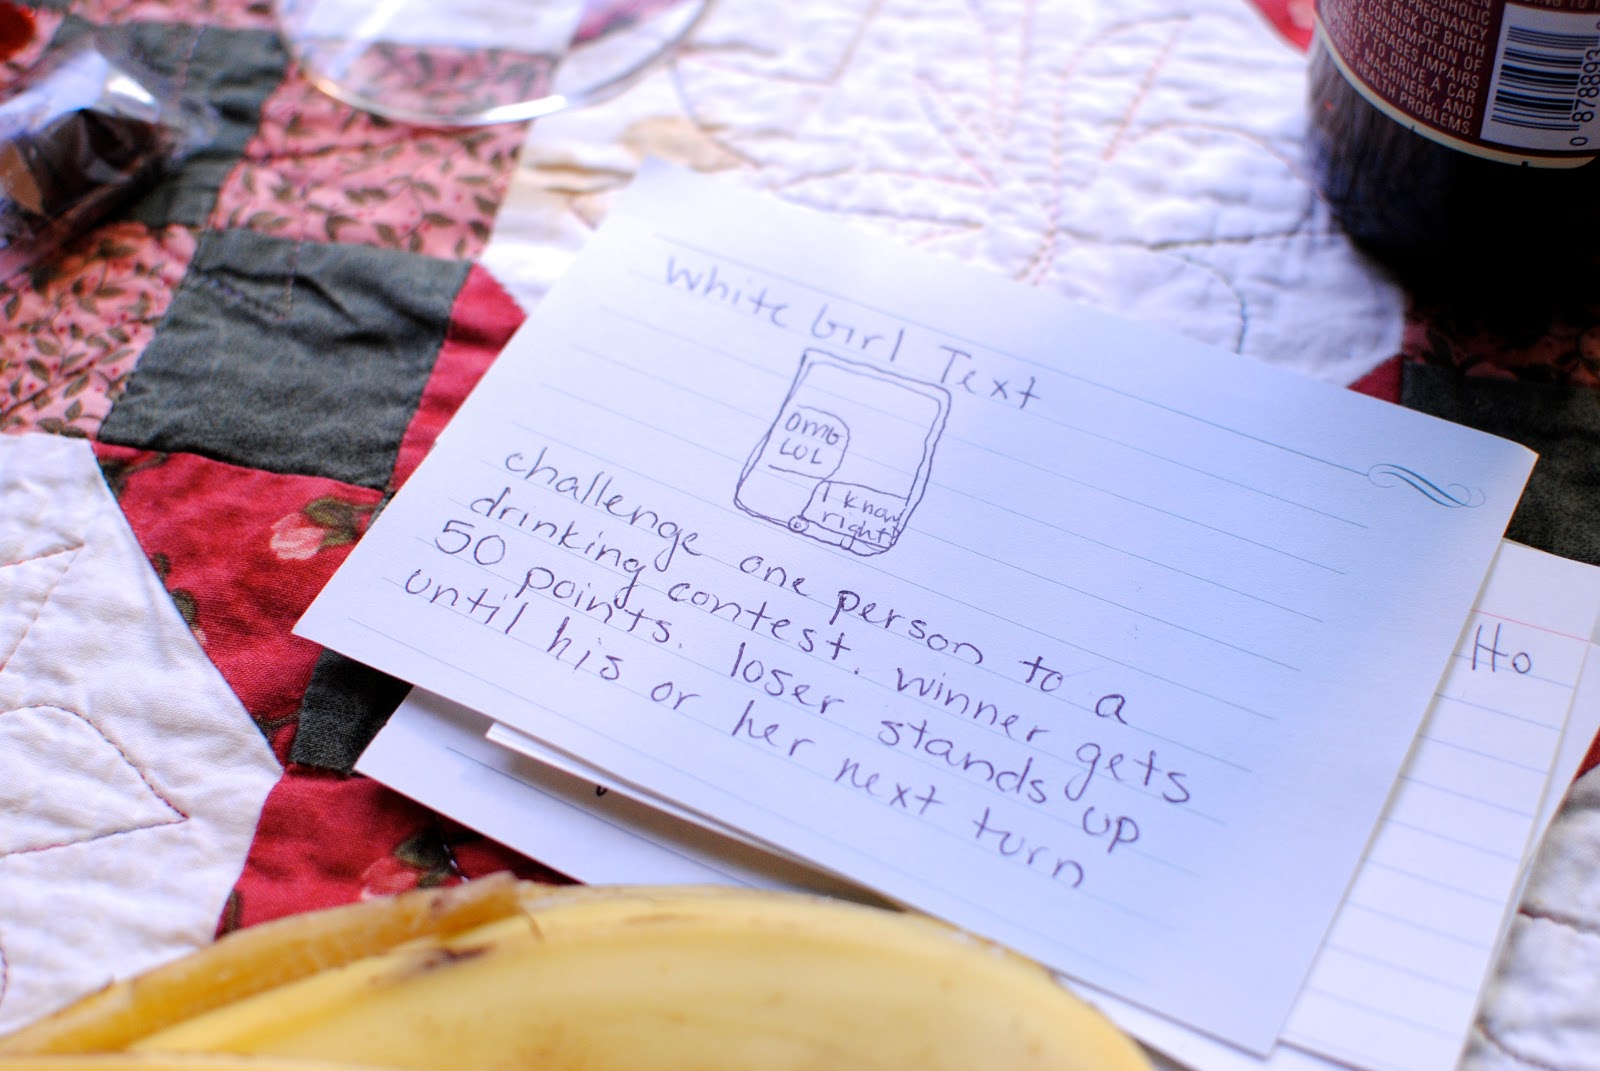 OHOLIC
PREGNANCY
RISK OF BIRTH
CONSUMPTION OF
BEVERAGES IMPAIRS
TO DRIVE A CAR
MACHINERY, AND
HEALTH PROBLEMS.
0 878893
White Girl Text
OMG
LOL
I know
right?
challenge one person to a
drinking contest. winner gets
50 points. loser stands up
until his or her next turn
Ho